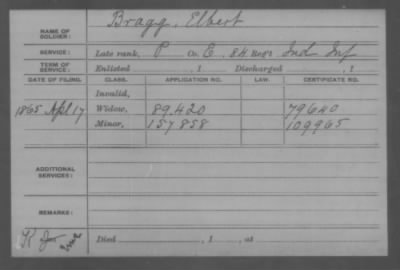 NAME OF SOLDIER: Bragg, Elbert
SERVICE: Late rank, P Co. E, 84 Reg't Ind Inf
TERM OF SERVICE: Enlisted , 1 Discharged , 1
DATE OF FILING. CLASS. APPLICATION NO. LAW. CERTIFICATE NO.
Invalid,
1865 Apl 17 Widow, 89.420 79640
Minor, 157858 109965
ADDITIONAL SERVICES:
REMARKS:
K Died , 1 , at